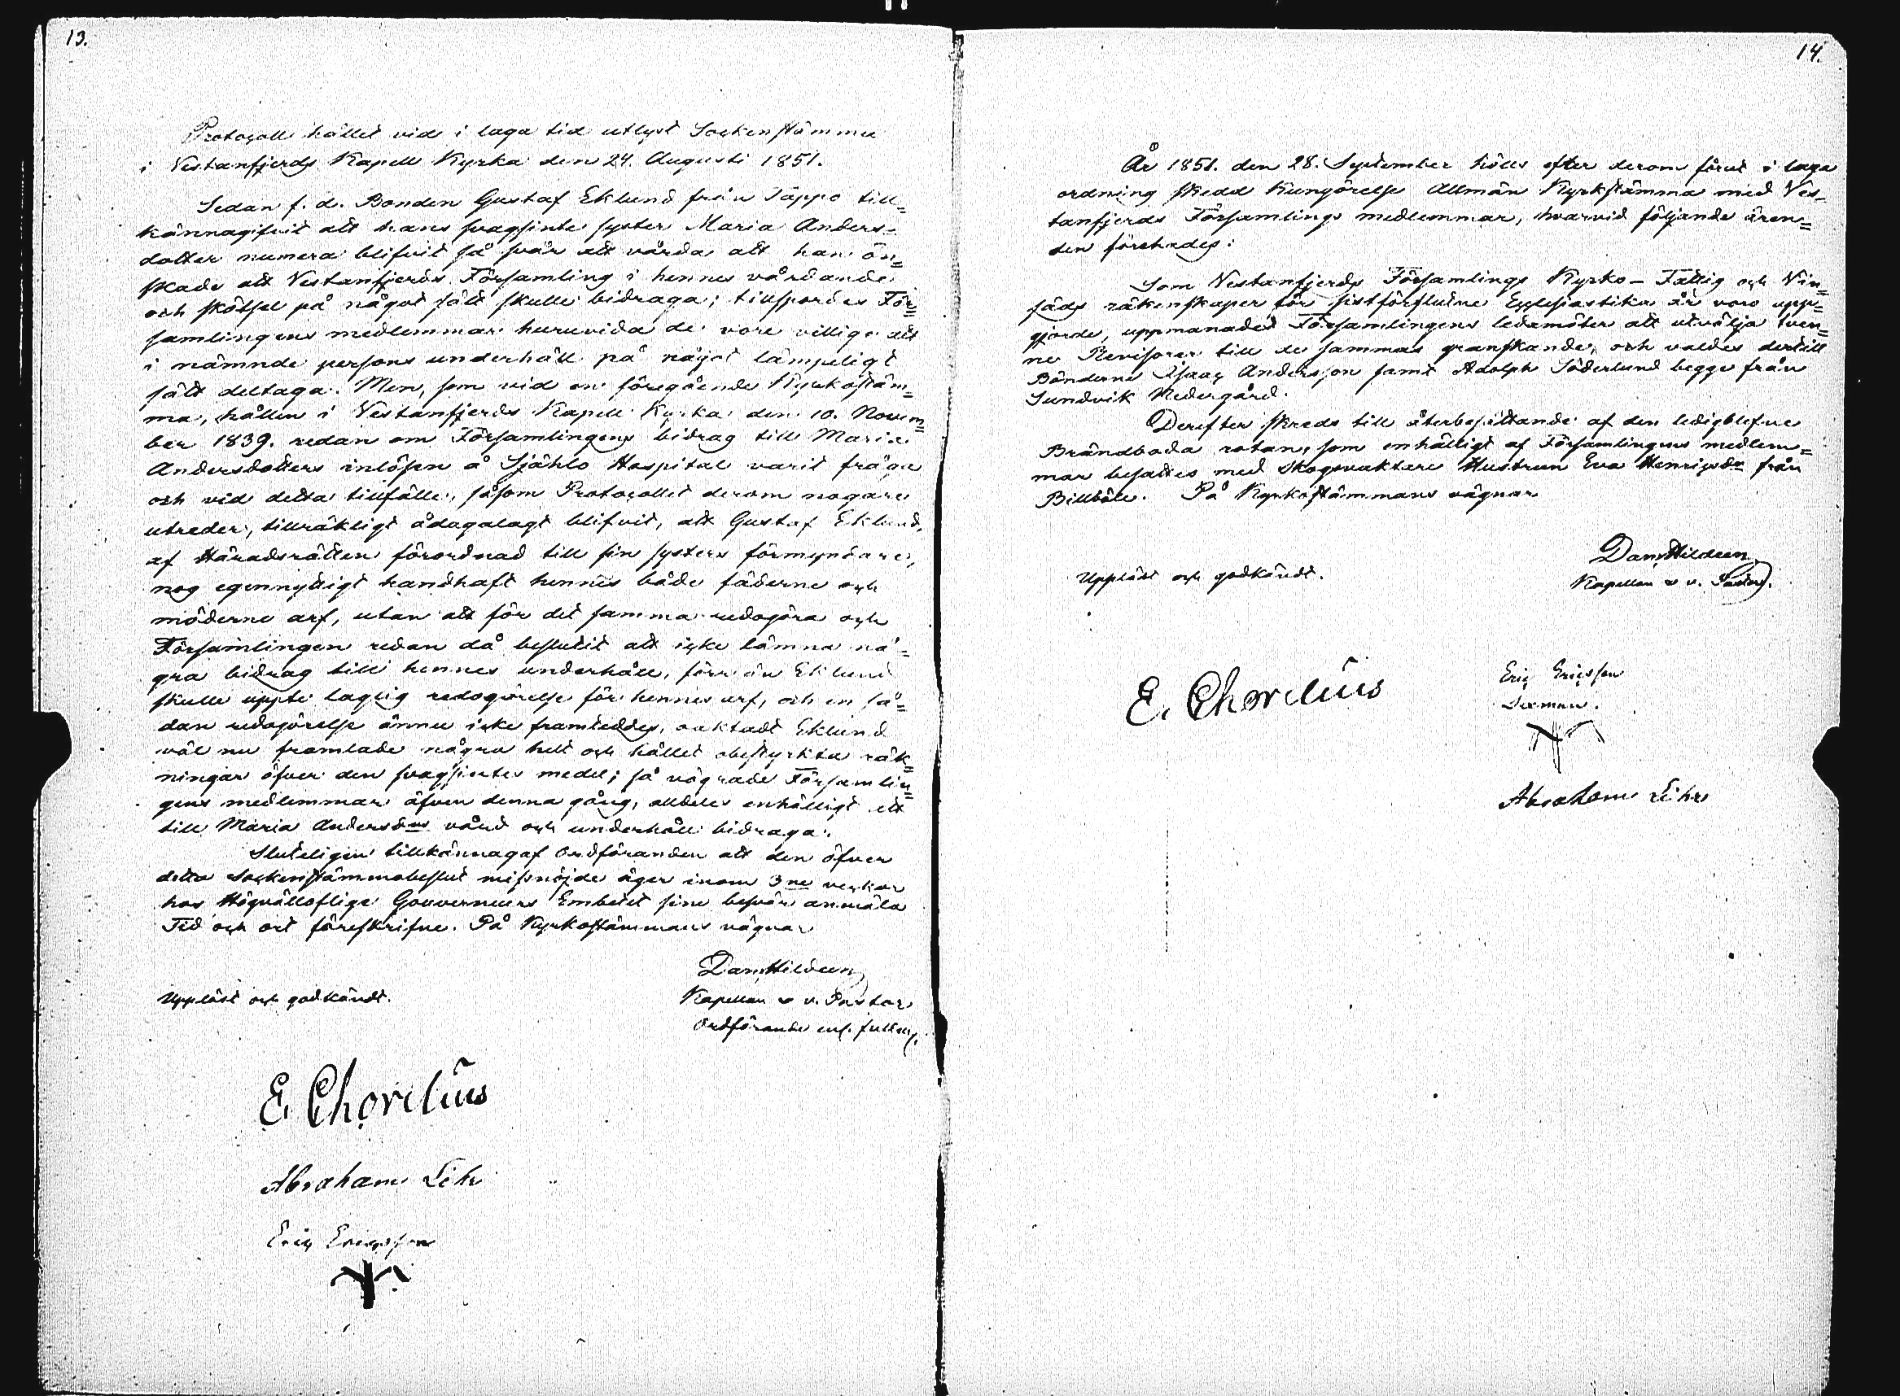 13.
Protocoll hållit vid i laga tid utlyst Sockenstämma
i Vestanfjerds Kapell Kyrka den 24. Augusti 1851.
Sedan f. d. Bonden Gustaf Eklund från Täppo till=
kännagifvit att hans svagsinta syster Maria Anders=
dotter numera blifvit så svår att vårda att han ön=
skade att Vestanfjerds Församling i hennes vårdande
och skötsel på något sätt skulle bidraga; tillspordes För=
samlingens medlemmar huruvida de vore villige att
i nämnde persons underhåll på något lämpeligt
sätt deltaga. Men, som vid en föregående Kyrkostäm=
ma, hållen i Vestanfjerds Kapell Kyrka den 10. Novem=
ber 1839. redan om Församlingens bidrag till Maria
Andersdotters inlösen å Själo Hospital varit fråga
och vid detta tillfälle, såsom Protocollet derom nogare
utreder, tillräkligt ådagalagt blifvit, att Gustaf Eklund,
af Häradsrätten förordnad till sin systers förmyndare,
nog egennyttigt handhaft hennes både fäderne och
möderne arf, utan att för det samma redogöra och
Församlingen redan då beslutit att icke lämna nå=
gra bidrag till hennes underhåll, förr än Eklund
skulle uppte laglig redogörelse för hennes arf, och en så=
dan redogörelse ännu icke framteddes, oaktadt Eklund
väl nu framlade några helt och hållet obestyrkta räk=
ningar öfver den svagsintes medel; så vägrade Församlin=
gens medlemmar äfven denna gång, alldeles enhälligt att
till Maria Andersdrs vård och underhåll bidraga.
Sluteligen tillkännagaf Ordföranden att den öfver
detta Sockenstämmobeslut missnöjde äger inom 3ne veckor
hos Högvälloflige Gouverneurs Embetet sine besvär anmäla
Tid och ort föreskrifne. På Kyrkostämmans vägnar
Dan Hildeen
Uppläst och godkändt. Kapellan o v. Pastor
Ordförande
E. Chorelius
Abraham Lihr
Eric Ericsson
14.
År 1851. den 28. September hölls efter derom förut i laga
ordning skedd kungörelse Allmän Kyrkstämma med Ves=
tanfjerds Församlings medlemmar, hvarvid följande ären=
den förehades:
Som Vestanfjerds Församlings Kyrko- Fattig och Vin=
säds räkenskaper för sistförflutne Ecclesiastika år voro upp=
gjorde, uppmanades Församlingens ledamöter att utvälja tven=
ne Revisorer till de sammas granskande, och valdes dertill
Bönderne Isaac Andersson samt Adolph Söderlund begge från
Sundvik Nedergård.
Derefter skreds till återbesättande af den ledigblefne
Brändboda rotan, som enhälligt af Församlingens medlem=
mar besattes med Skogsvaktare Hustrun Eva Henricsdr från
Billböle. På Kyrkostämmans vägnar
Dan Hildeen
Uppläst och godkändt. Kapellan o v. Pastor.
E. Chorelius
Eric Ericsson
Sexman.
Abraham Lihr